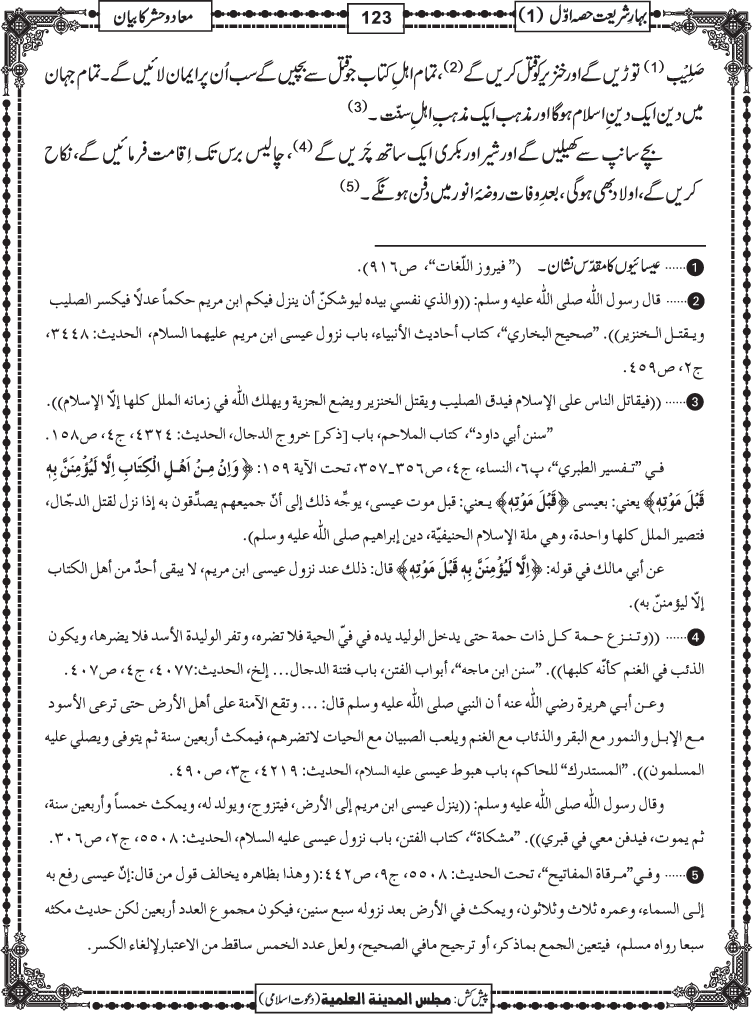 بہارِ شریعت حصہ اوّل (1)
123
معاد و حشر کا بیان
صَلِیْب (1) توڑیں گے اور خنزیر کو قتل کریں گے (2)، تمام اہلِ کتاب جو قتل سے بچیں گے سب اُن پر ایمان لائیں گے۔ تمام جہان
میں دین ایک دینِ اسلام ہوگا اور مذہب ایک مذہبِ اہلِ سنّت ۔ (3)
بچے سانپ سے کھیلیں گے اور شیر اور بکری ایک ساتھ چَریں گے (4)، چالیس برس تک اِقامت فرمائیں گے، نکاح
کریں گے، اولاد بھی ہوگی، بعدِ وفات روضۂ انور میں دفن ہونگے۔ (5)
1 ...... عیسائیوں کا مقدّس نشان۔ (”فیروز اللّغات“، ص۹۱۶).
2 ...... قال رسول اللّٰه صلى اللّٰه عليه وسلم: ((والذي نفسي بيده ليوشكنّ أن ينزل فيكم ابن مريم حكماً عدلًا فيكسر الصليب
ويقتل الخنزير)). ”صحيح البخاري“، كتاب أحاديث الأنبياء، باب نزول عيسى ابن مريم عليهما السلام، الحديث: ٣٤٤٨،
ج٢، ص٤٥٩.
3 ...... ((فيقاتل الناس على الإسلام فيدق الصليب ويقتل الخنزير ويضع الجزية ويهلك اللّٰه في زمانه الملل كلها إلّا الإسلام)).
”سنن أبي داود“، كتاب الملاحم، باب [ذكر] خروج الدجال، الحديث: ٤٣٢٤، ج٤، ص١٥٨.
في ”تفسير الطبري“، پ٦، النساء، ج٤، ص٣٥٦ـ٣٥٧، تحت الآية ١٥٩: ﴿ وَاِنْ مِّنْ اَهْلِ الْكِتٰبِ اِلَّا لَيُؤْمِنَنَّ بِهٖ
قَبْلَ مَوْتِهٖ ﴾ يعني: بعيسى ﴿ قَبْلَ مَوْتِهٖ ﴾ يعني: قبل موت عيسى، يوجِّه ذلك إلى أنّ جميعهم يصدِّقون به إذا نزل لقتل الدجّال،
فتصير الملل كلها واحدة، وهي ملة الإسلام الحنيفيّة، دين إبراهيم صلى اللّٰه عليه وسلم).
عن أبي مالك في قوله: ﴿ اِلَّا لَيُؤْمِنَنَّ بِهٖ قَبْلَ مَوْتِهٖ ﴾ قال: ذلك عند نزول عيسى ابن مريم، لا يبقى أحدٌ من أهل الكتاب
إلّا ليؤمننّ به).
4 ...... ((وتنزع حمة كل ذات حمة حتى يدخل الوليد يده في فيّ الحية فلا تضره، وتفر الوليدة الأسد فلا يضرها، ويكون
الذئب في الغنم كأنّه كلبها)). ”سنن ابن ماجه“، أبواب الفتن، باب فتنة الدجال... إلخ، الحديث:٤٠٧٧، ج٤، ص٤٠٧.
وعن أبي هريرة رضي اللّٰه عنه أ ن النبي صلى اللّٰه عليه وسلم قال: ... وتقع الآمنة على أهل الأرض حتى ترعى الأسود
مع الإبل والنمور مع البقر والذئاب مع الغنم ويلعب الصبيان مع الحيات لاتضرهم، فيمكث أربعين سنة ثم يتوفى ويصلي عليه
المسلمون)). ”المستدرك“ للحاكم، باب هبوط عيسى عليه السلام، الحديث: ٤٢١٩، ج٣، ص٤٩٠.
وقال رسول اللّٰه صلى اللّٰه عليه وسلم: ((ينزل عيسى ابن مريم إلى الأرض، فيتزوج، ويولد له، ويمكث خمساً وأربعين سنة،
ثم يموت، فيدفن معي في قبري)). ”مشكاة“، كتاب الفتن، باب نزول عيسى عليه السلام، الحديث: ٥٥٠٨، ج٢، ص٣٠٦.
5 ...... وفي”مرقاة المفاتيح“، تحت الحديث: ٥٥٠٨، ج٩، ص٤٤٢:( وهذا بظاهره يخالف قول من قال:إنّ عيسى رفع به
إلى السماء، وعمره ثلاث وثلاثون، ويمكث في الأرض بعد نزوله سبع سنين، فيكون مجموع العدد أربعين لكن حديث مكثه
سبعا رواه مسلم، فيتعين الجمع بماذكر، أو ترجيح مافي الصحيح، ولعل عدد الخمس ساقط من الاعتبارلإلغاء الكسر.
پیش کش: مجلس المدینة العلمیة (دعوت اسلامی)